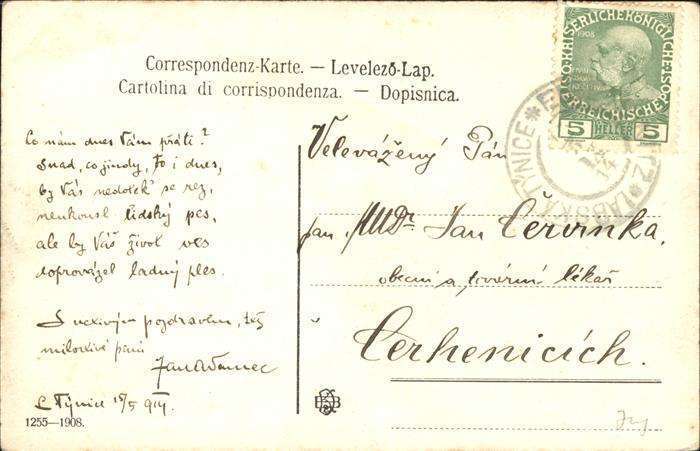 Correspondenz-Karte. — Levelező-Lap.
Cartolina di corrispondenza. — Dopisnica.
1908
5 HELLER 5
TÝNICE * LABSKÁ
Co nám dnes Vám přáti?
Snad, co jindy, to i dnes,
by Vás nedotek' se rez,
neukousl lidský pes,
ale by Váš život ves
doprovázel ladný ples.
S uctivým pozdravem, též
milostivé paní
Jan
L Týnice 15/5
1255—1908.
Velevážený Pán
pan MUDr Jan Červinka,
obecní a tovární lékař
v
Cerhenicích.